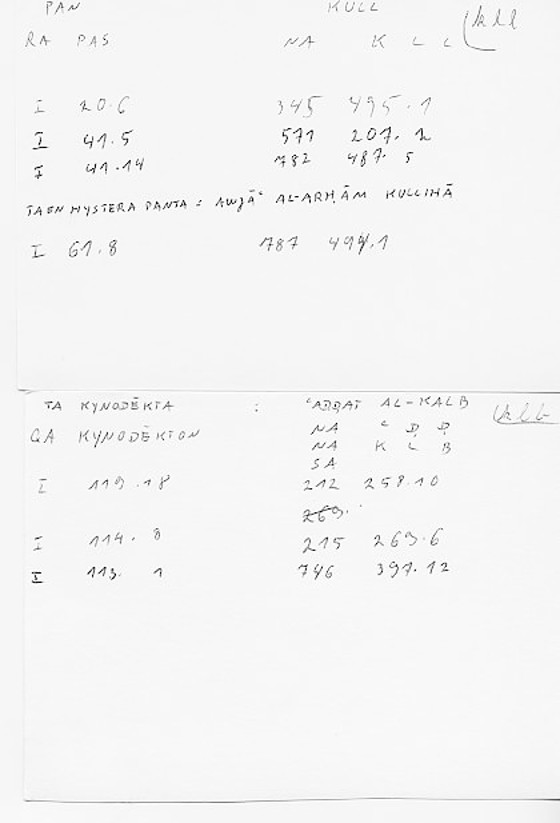 PAN KULL
RA PAS NA K L L kll
I 20.6 345 495.1
I 41.5 571 207.2
I 41.14 782 487.5
TAEN HYSTERA PANTA : AWJĀʿ AL-ARḤĀM KULLIHĀ
I 61.8 787 494.1
TA KYNODĒKTA : ʿAḌḌAT AL-KALB klb
QA KYNODĒKTON NA ʿ Ḍ Ḍ
NA K L B
SA
I 119.18 212 258.10
269.
I 114.8 215 263.6
I 113.1 746 397.12